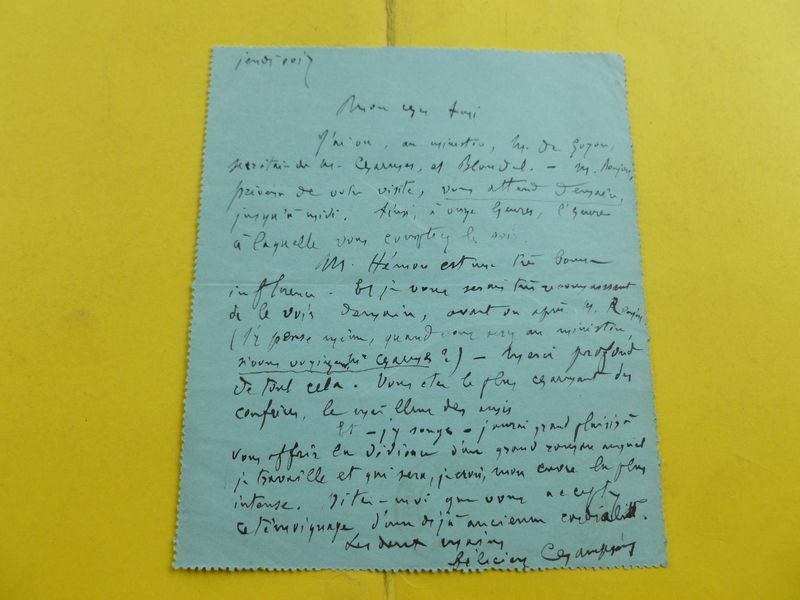 jeudi soir
Mon cher Ami
J'ai vu, au ministère, M. de Goyon,
secrétaire de M. Chaumié, et Blondel. – M.
prévenu de votre visite, vous attend demain,
jusqu'à midi. Ainsi, à onze heures, l'heure
à laquelle vous comptiez le voir.
M. Hémon est une très bonne
influence. Et je vous serais très reconnaissant
de le voir demain, avant ou après M.
(J'y pense même, quand vous serez au ministère,
si vous voyiez M. Chaumié ?) – Merci profond
de tout cela. Vous êtes le plus charmant des
confrères, le meilleur des amis
Et – j'y songe – j'aurai grand plaisir à
vous offrir la dédicace d'un grand roman auquel
je travaille et qui sera, je crois, mon œuvre la plus
intense. Dites-moi que vous acceptez
ce témoignage d'une déjà ancienne cordialité.
Les deux mains
Félicien Champsaur